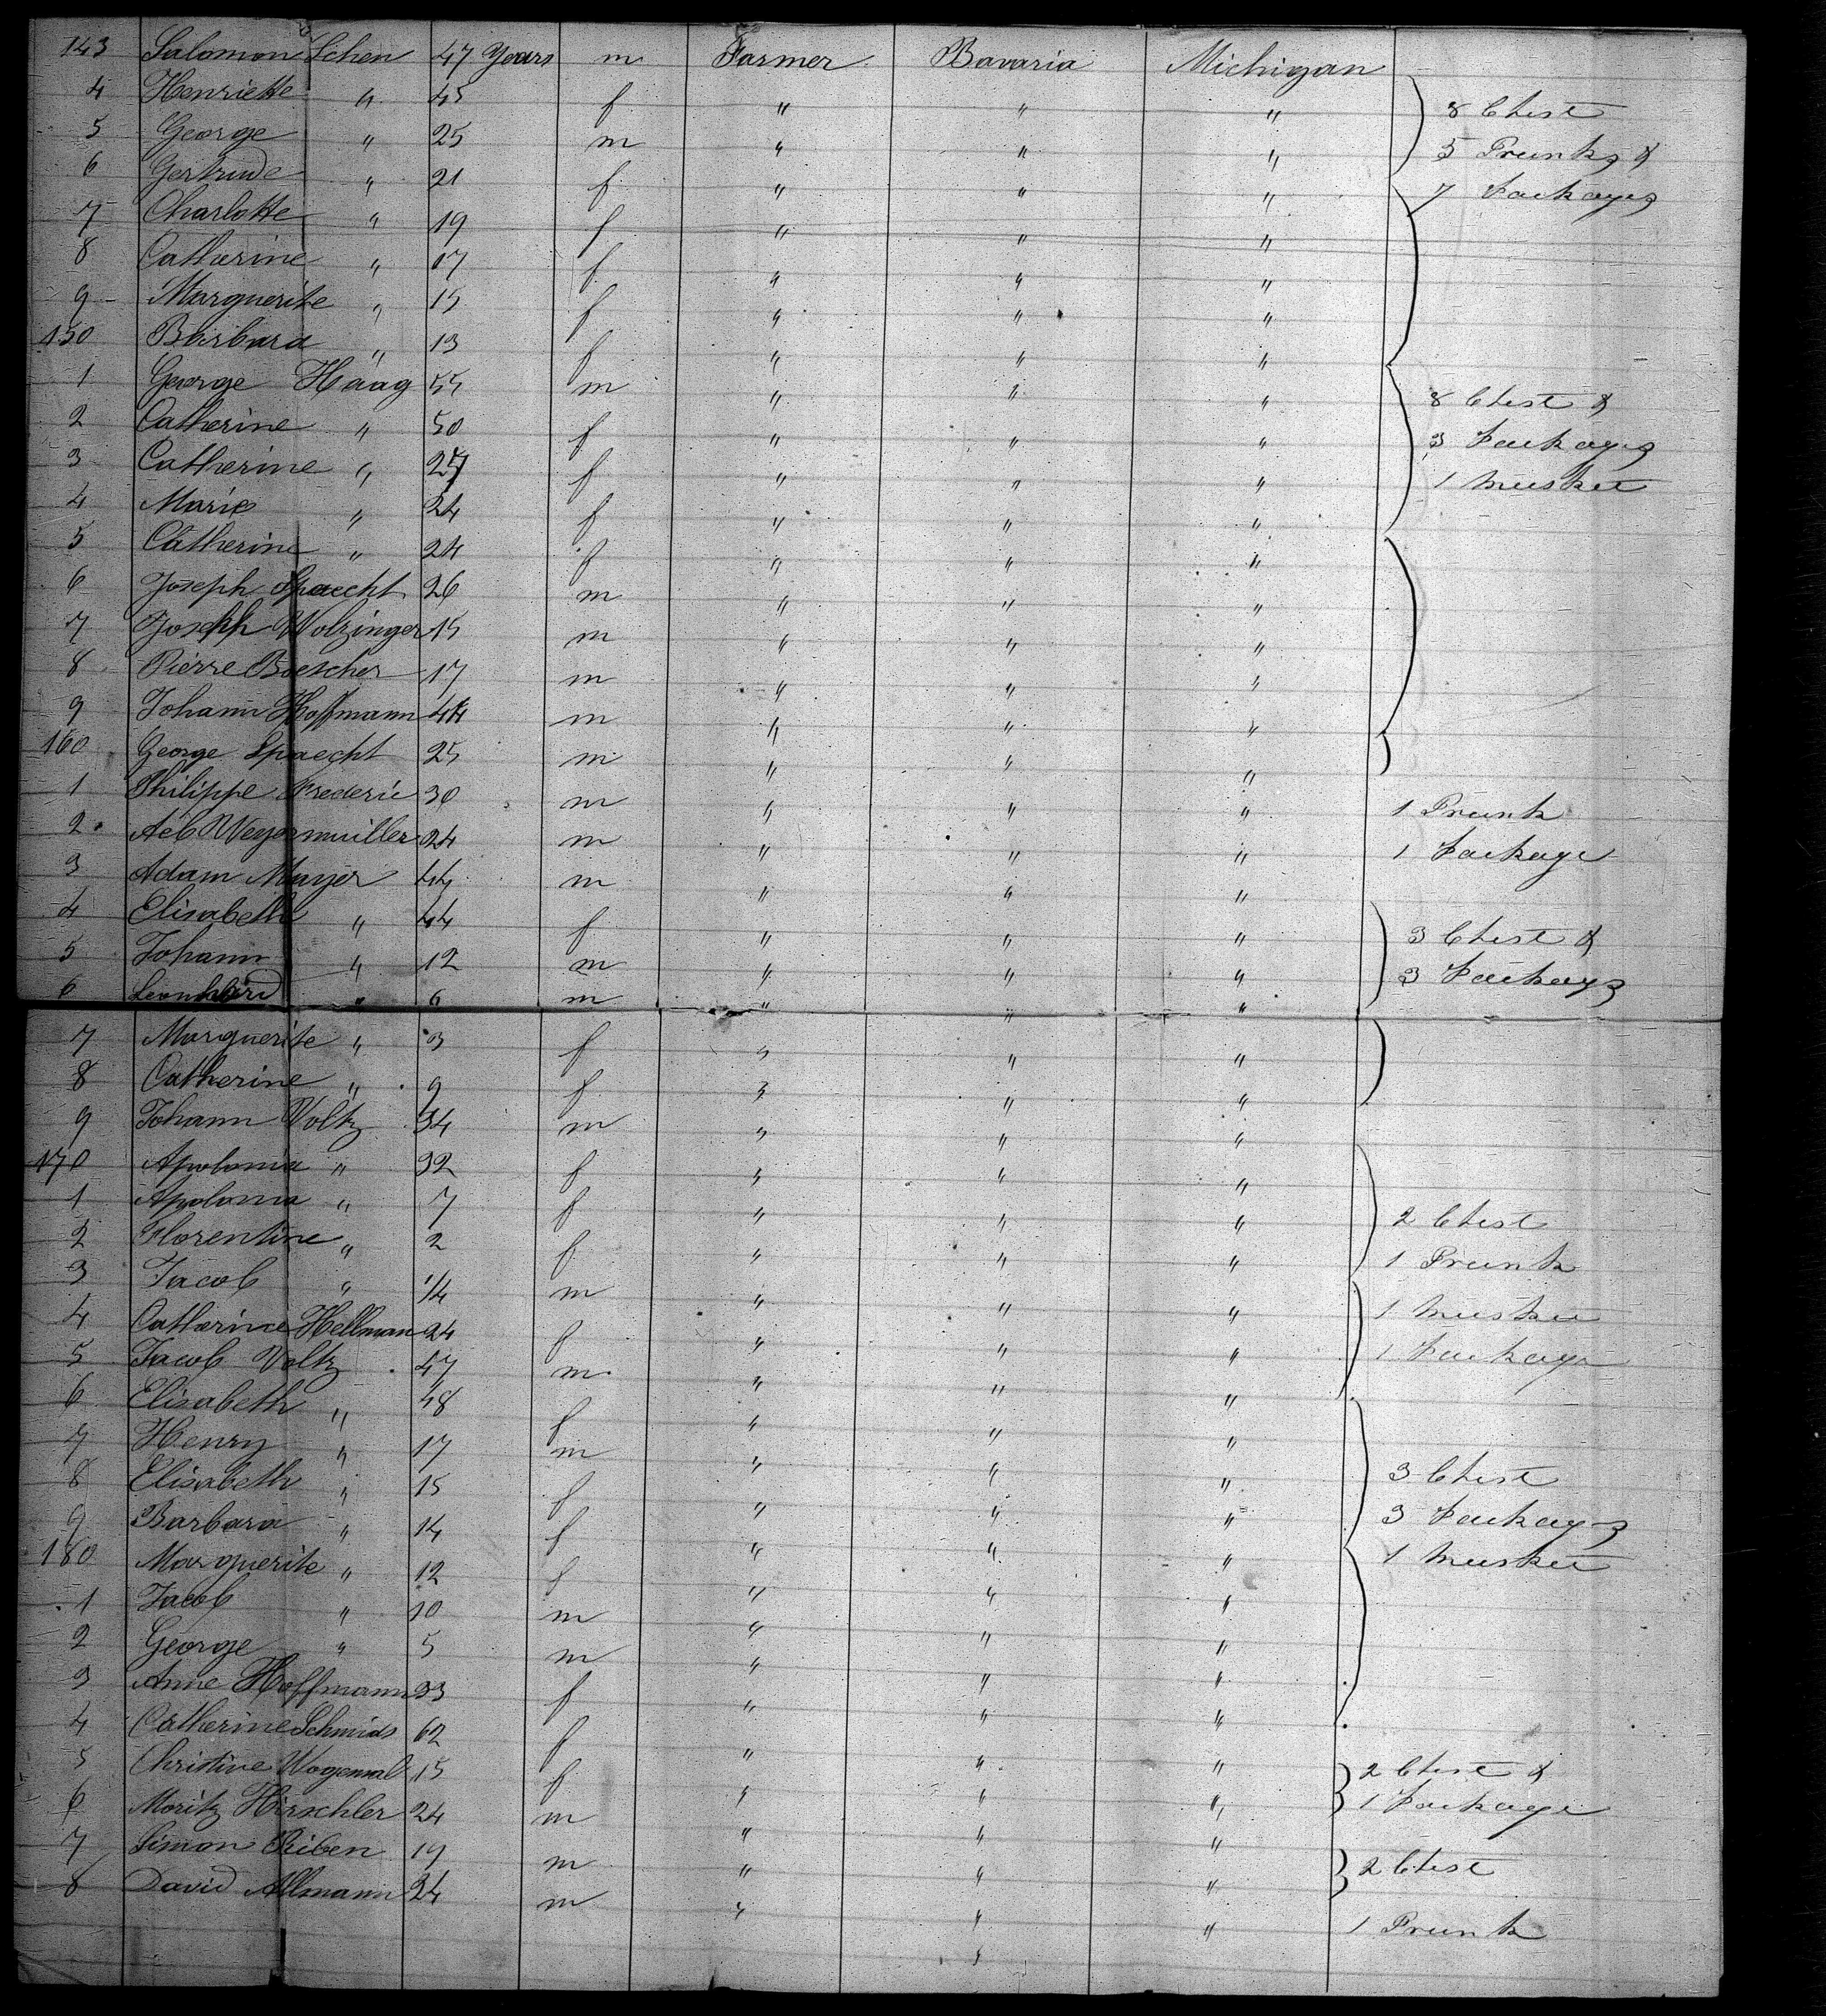 143 Salomon Schen 47 Years m Farmer Bavaria Michigan
4 Henriette " 45 f " " " 8 Chest
5 George " 25 m " " " 5 Trunks &
6 Gertrude " 21 f " " " 7 Packages
7 Charlotte " 19 f " " "
8 Catherine " 17 f " " "
9 Marguerite " 15 f " " "
150 Barbara " 13 f " " "
1 George Haag 55 m " " " 8 Chest &
2 Catherine " 50 f " " " 3 Packages
3 Catherine " 27 f " " " 1 Musket
4 Marie " 24 f " " "
5 Catherine " 24 f " " "
6 Joseph Spaecht 26 m " " "
7 Joseph Wolzinger 15 m " " "
8 Pierre Boescher 17 m " " "
9 Johann Hoffmann 44 m " " "
160 George Spaecht 25 m " " "
1 Philippe Frederic 30 m " " " 1 Trunk
2 Weyermuiller 24 m " " " 1 Package
3 Adam Mayer 44 m " " "
4 Elisabeth " 44 f " " " 3 Chest &
5 Johann " 12 m " " " 3 Packags
6 Leonhard " 6 m " " "
7 Marguerite " 3 f " " "
8 Catherine " 9 f " " "
9 Johann Voltz 34 m " " "
170 Apolonia " 32 f " " "
1 Apolonia " 7 f " " " 2 Chest
2 Florentine " 2 f " " " 1 Trunk
3 Jacob " 1/4 m " " " 1 Musket
4 Catherine Hellman 24 f " " " 1 Package
5 Jacob Voltz 47 m " " "
6 Elisabeth " 48 f " " "
7 Henry " 17 m " " " 3 Chest
8 Elisabeth " 15 f " " " 3 Packags
9 Barbara " 14 f " " " 1 Musket
180 Marguerite " 12 f " " "
1 Jacob " 10 m " " "
2 George " 5 m " " "
3 Anne Hoffmann 33 f " " "
4 Catherine Schmids 62 f " " "
5 Christine Wagemal 15 f " " " 2 Chest &
6 Moritz Hirschler 24 m " " " 1 Package
7 Simon Riben 19 m " " " 2 Chest
8 David Allmann 24 m " " " 1 Trunk